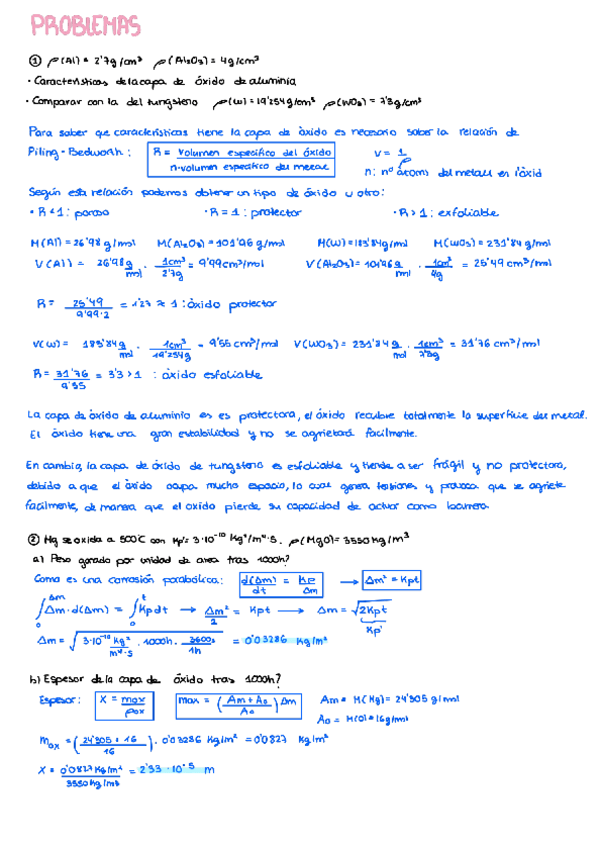 PROBLEMAS
① ρ(Al) = 2'7g/cm³ ρ(Al₂O₃) = 4g/cm³
· Características de la capa de óxido de aluminio
· Comparar con la del tungsteno ρ(W) = 19'254g/cm³ ρ(WO₃) = 7'3g/cm³
Para saber que características tiene la capa de óxido es necesario saber la relación de
Piling-Bedworth: R = volumen específico del óxido / n·volumen específico del metal V = 1/ρ
n: nº átomos del metal en l'òxid
Según esta relación podemos obtener un tipo de óxido u otro:
· R < 1 : poroso · R = 1 : protector · R > 1 : exfoliable
M(Al) = 26'98 g/mol M(Al₂O₃) = 101'96 g/mol M(W) = 183'84g/mol M(WO₃) = 231'84 g/mol
V(Al) = 26'98 g/mol · 1cm³/2'7g = 9'99cm³/mol V(Al₂O₃) = 101'96 g/mol · 1cm³/4g = 25'49 cm³/mol
R = 25'49/9'99·2 = 1'27 ≈ 1 : óxido protector
V(W) = 183'84 g/mol · 1cm³/19'254g = 9'55 cm³/mol V(WO₃) = 231'84 g/mol · 1cm³/7'3g = 31'76 cm³/mol
R = 31'76/9'55 = 3'3 > 1 : óxido exfoliable
La capa de óxido de aluminio es es protectora, el óxido recubre totalmente la superficie del metal.
El óxido tiene una gran estabilidad y no se agrietará facilmente.
En cambio, la capa de óxido de tungsteno es exfoliable y tiende a ser frágil y no protectora,
debido a que el óxido ocupa mucho espacio, lo cual genera tensiones y provoca que se agriete
facilmente, de manera que el oxido pierde su capacidad de actuar como barrera.
② Mg se oxida a 500°C con Kp' = 3·10⁻¹⁰ Kg²/m⁴·s. ρ(MgO) = 3550 Kg/m³
a) Peso ganado por unidad de area tras 1000h?
Como es una corrosión parabólica: d(Δm)/dt = Kp/Δm → Δm² = Kpt
∫₀^Δm Δm·d(Δm) = ∫₀^t Kpdt → Δm²/2 = Kpt → Δm = √2Kpt
Kp'
Δm = √3·10⁻¹⁰ Kg²/m⁴·s · 1000h · 3600s/1h = 0'03286 Kg/m²
b) Espesor de la capa de óxido tras 1000h?
Espesor: X = mox/ρox mox = (Am + Ao/Ao) Δm Am = M(Mg) = 24'305 g/mol
Ao = M(O) = 16g/mol
mox = (24'305 + 16/16) · 0'03286 Kg/m² = 0'0827 Kg/m²
X = 0'0827 Kg/m²/3550 Kg/m³ = 2'33·10⁻⁵ m